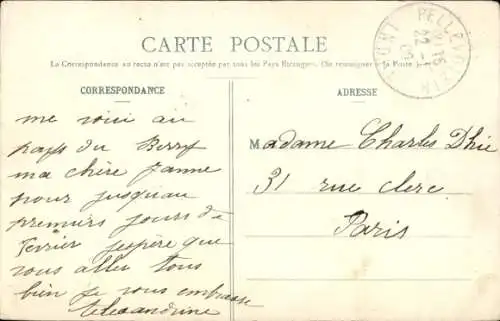 CARTE POSTALE
La Correspondance au recto n'est pas acceptée par tous les Pays Etrangers. (Se renseigner à la Poste)
CORRESPONDANCE
ADRESSE
PELLEVOISIN
me voici au
pays du Berry
ma chère Jeanne
pour jusquau
premiers jours de
fevrier jespère que
vous allez tous
bien je vous embrasse
Alexandrine
Madame Charles Dhie
31 rue clerc
Paris